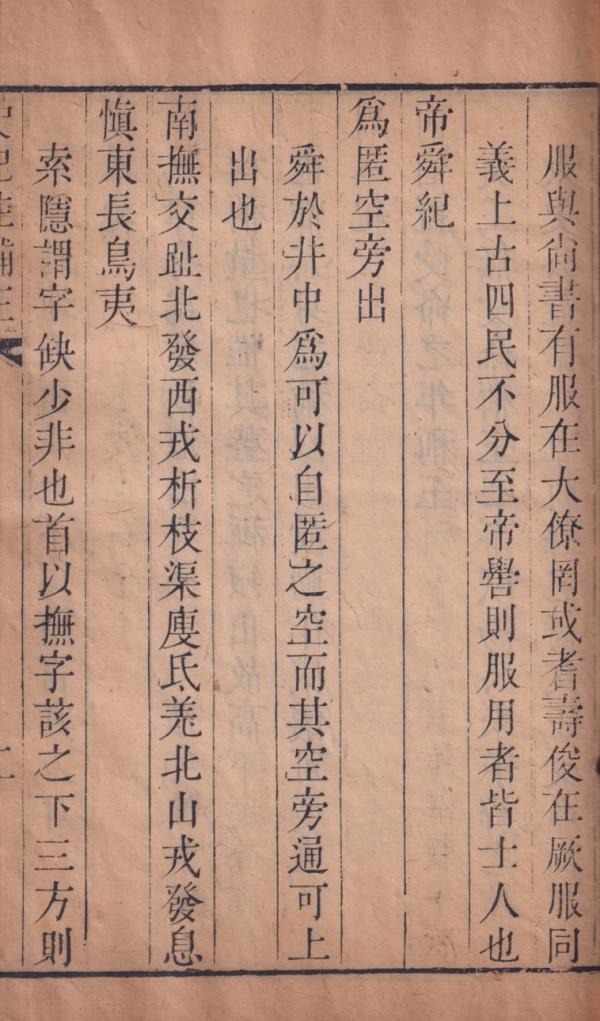 服與尙書有服在大僚罔或耆壽俊在厥服同
義上古四民不分至帝嚳則服用者皆士人也
帝舜紀
爲匿空旁出
舜於井中爲可以自匿之空而其空旁通可上
出也
南撫交趾北發西戎析枝渠廋氐羌北山戎發息
愼東長鳥夷
索隱謂字缺少非也首以撫字該之下三方則